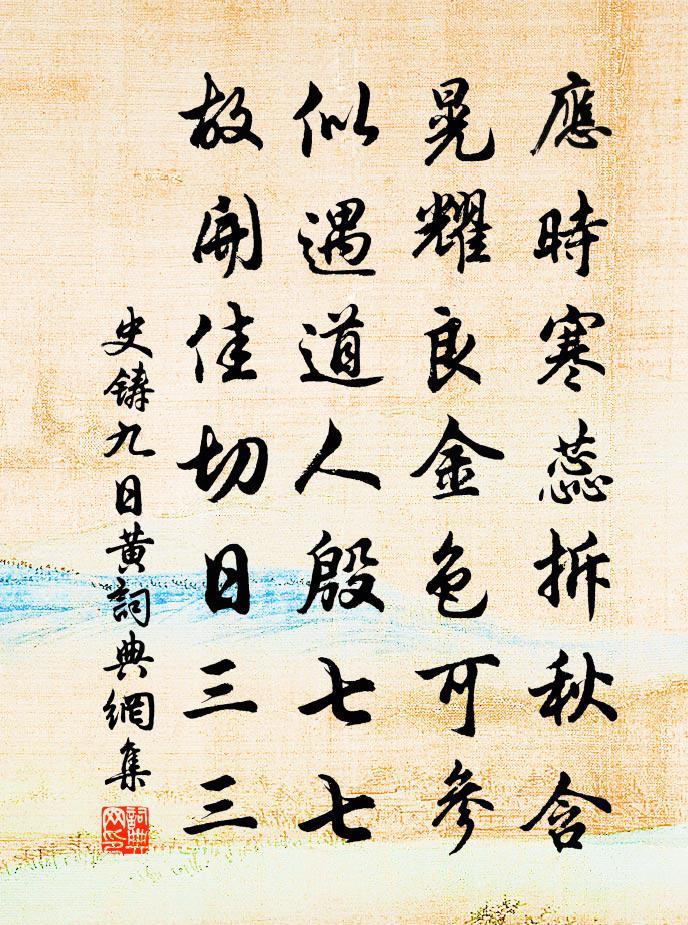 應時寒蕊拆秋含
晃耀良金色可參
似遇道人殷七七
故開佳切日三三
史鑄九日黃詞典網集
詞典網印